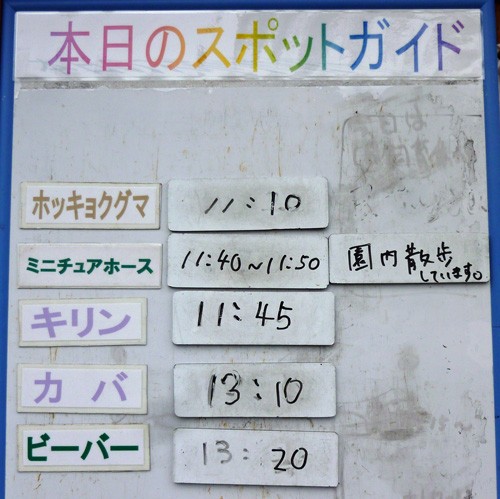 本日のスポットガイド
ホッキョクグマ 11:10
ミニチュアホース 11:40~11:50 園内散歩
しています。
キリン 11:45
カバ 13:10
ビーバー 13:20